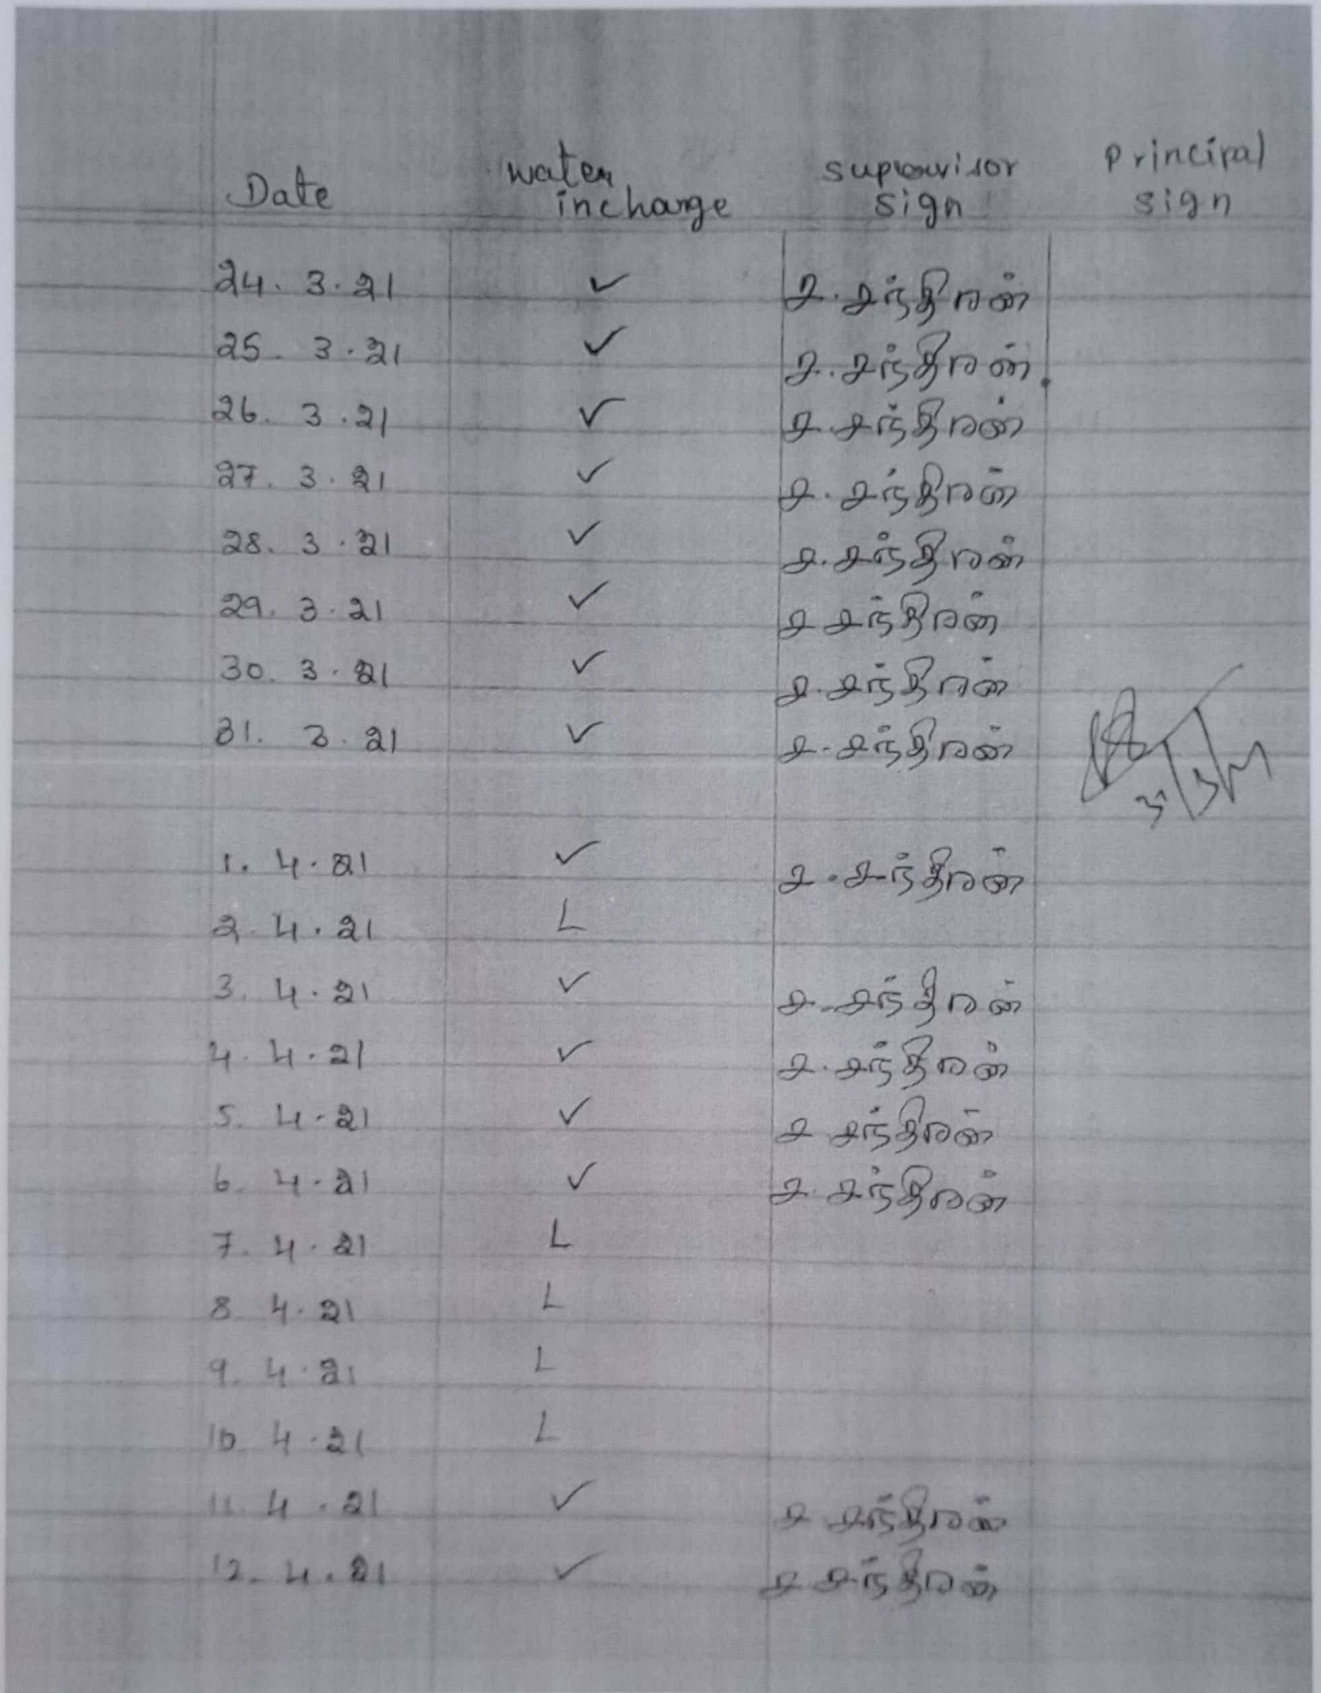 Date water incharge suprovisor sign principal sign
24. 3. 21 ✓ ச. சந்திரன்
25. 3. 21 ✓ ச. சந்திரன்
26. 3. 21 ✓ ச. சந்திரன்
27. 3. 21 ✓ ச. சந்திரன்
28. 3. 21 ✓ ச. சந்திரன்
29. 3. 21 ✓ ச சந்திரன்
30. 3. 21 ✓ ச. சந்திரன்
31. 3. 21 ✓ ச. சந்திரன்
31/3/21
1. 4. 21 ✓ ச. சந்திரன்
2. 4. 21 L
3. 4. 21 ✓ ச. சந்திரன்
4. 4. 21 ✓ ச. சந்திரன்
5. 4. 21 ✓ ச சந்திரன்
6. 4. 21 ✓ ச. சந்திரன்
7. 4. 21 L
8. 4. 21 L
9. 4. 21 L
10. 4. 21 L
11. 4. 21 ✓ ச சந்திரன்
12. 4. 21 ✓ ச சந்திரன்